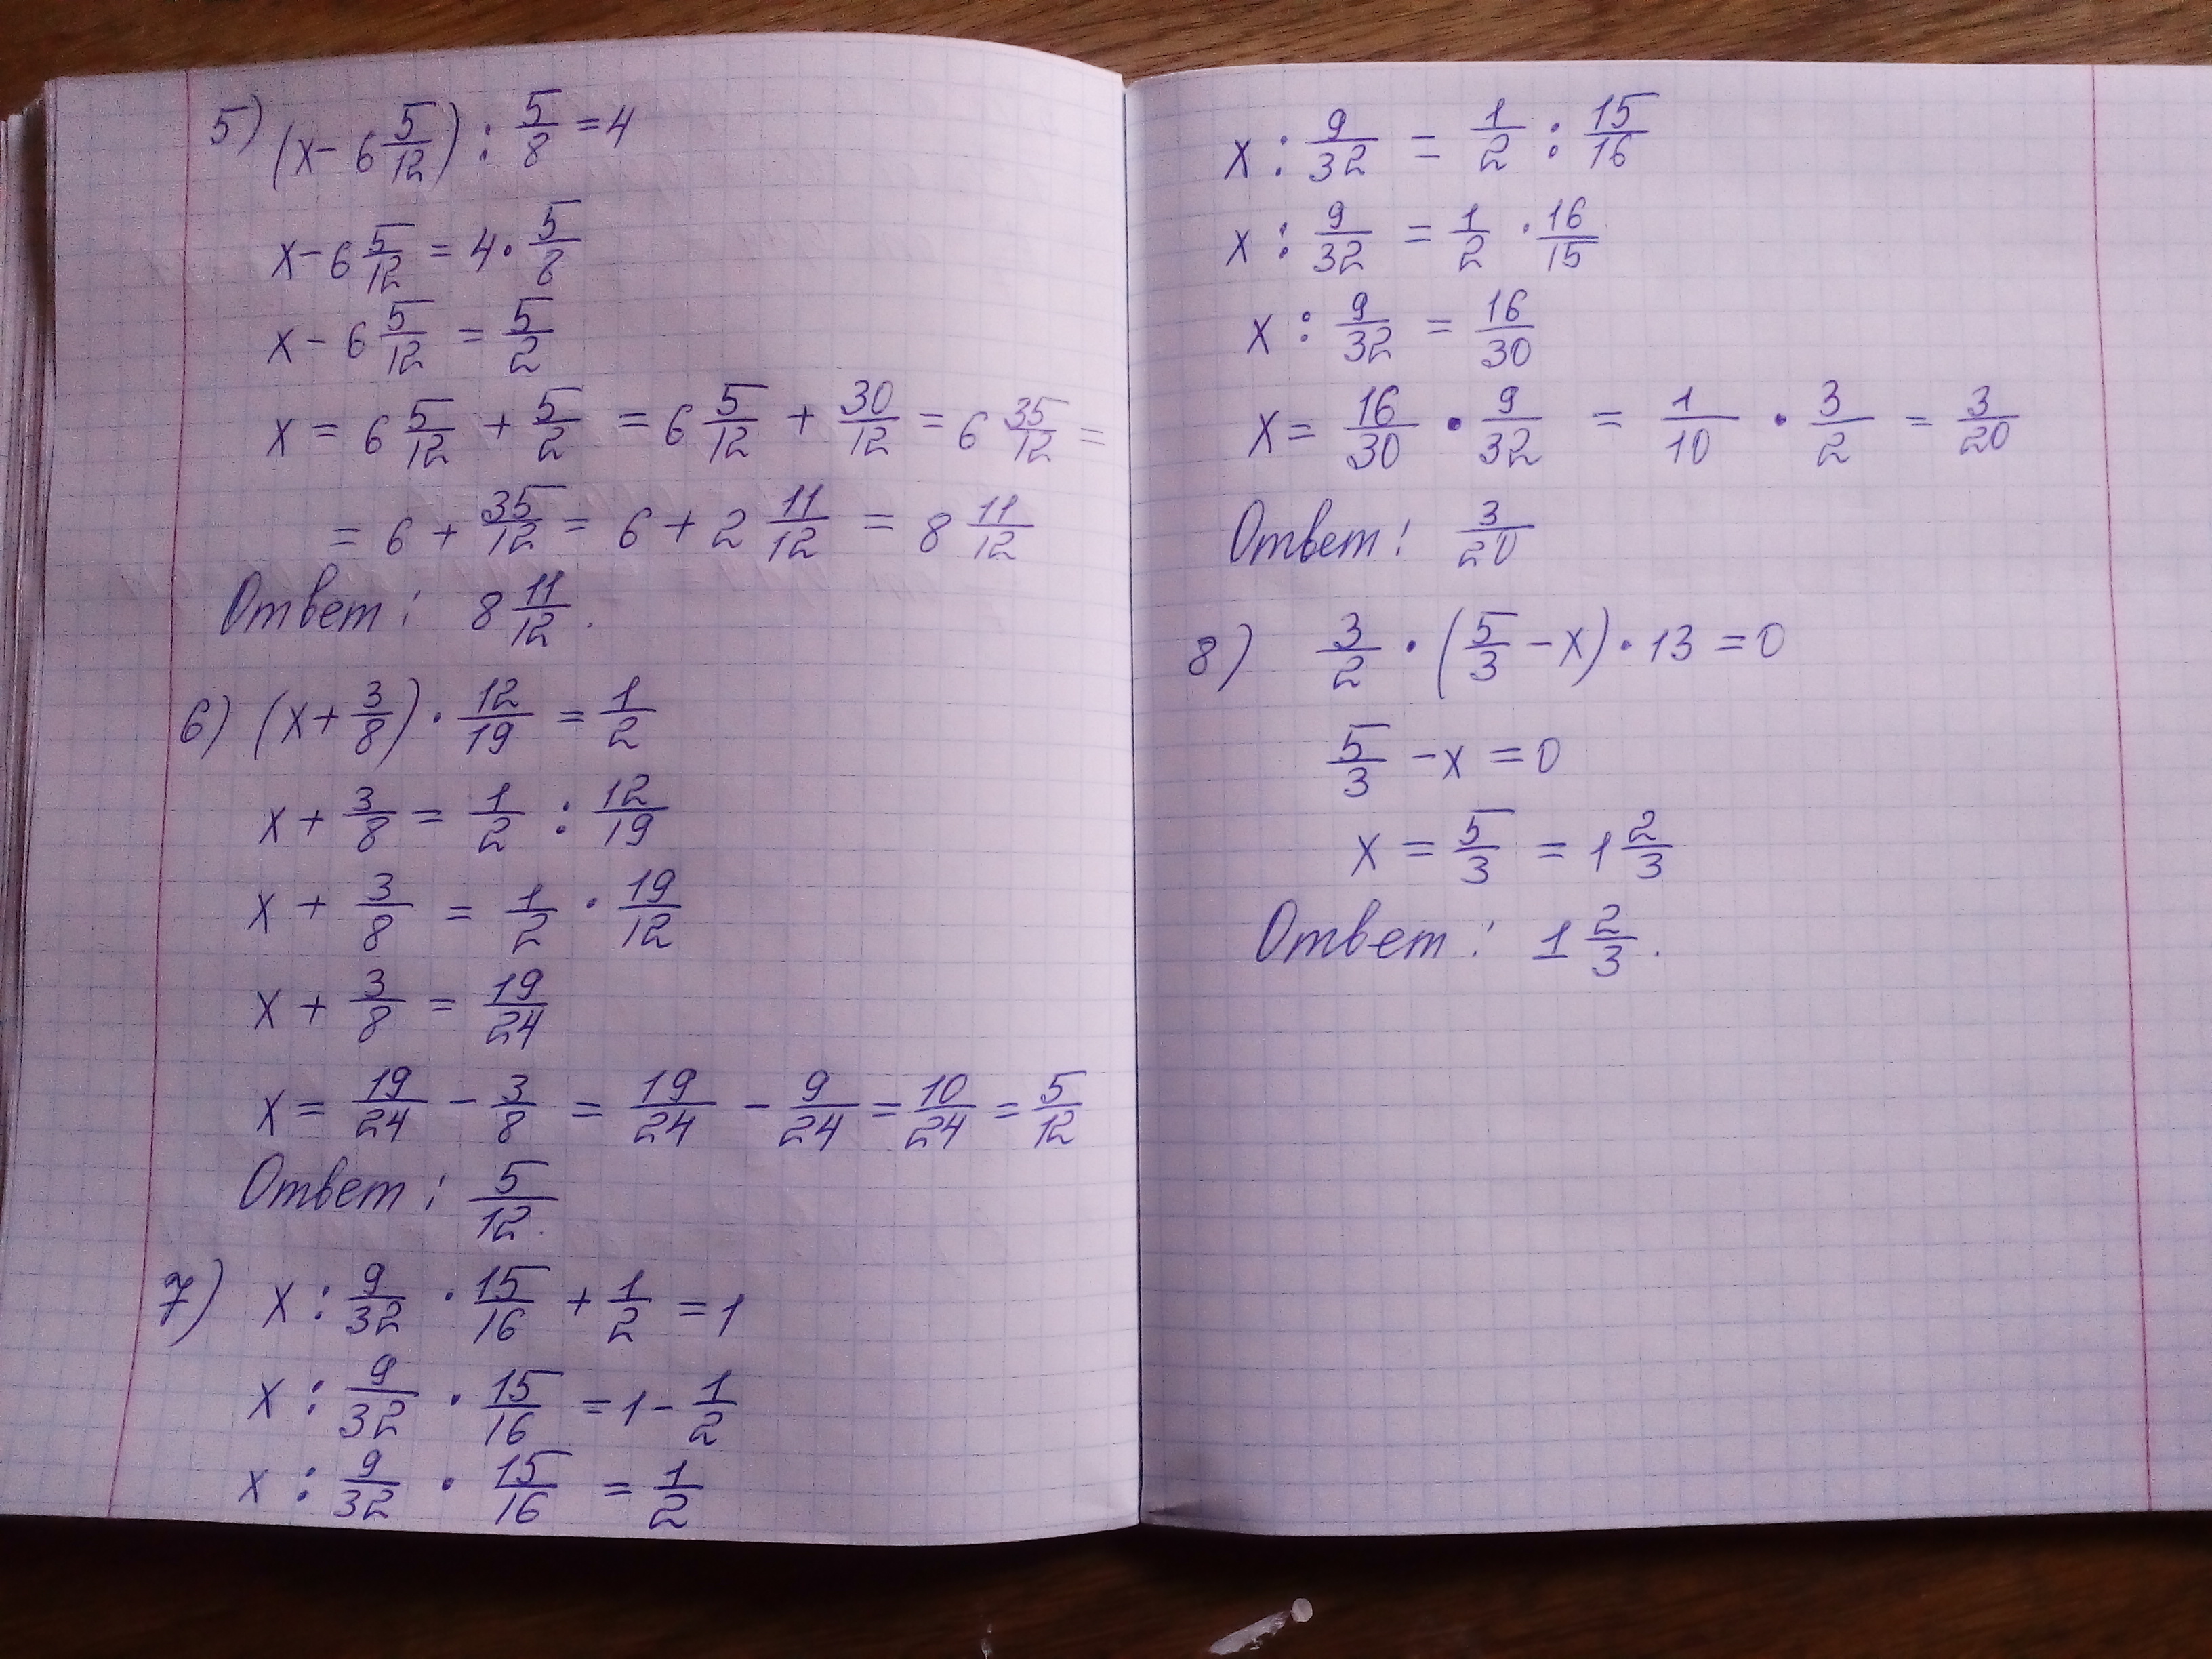 5) (x - 6 5/12) : 5/8 = 4
x - 6 5/12 = 4 · 5/8
x - 6 5/12 = 5/2
x = 6 5/12 + 5/2 = 6 5/12 + 30/12 = 6 35/12 =
= 6 + 35/12 = 6 + 2 11/12 = 8 11/12
Ответ: 8 11/12.
6) (x + 3/8) · 12/19 = 1/2
x + 3/8 = 1/2 : 12/19
x + 3/8 = 1/2 · 19/12
x + 3/8 = 19/24
x = 19/24 - 3/8 = 19/24 - 9/24 = 10/24 = 5/12
Ответ: 5/12.
7) x : 9/32 · 15/16 + 1/2 = 1
x : 9/32 · 15/16 = 1 - 1/2
x : 9/32 · 15/16 = 1/2
x : 9/32 = 1/2 : 15/16
x : 9/32 = 1/2 · 16/15
x : 9/32 = 16/30
x = 16/30 · 9/32 = 1/10 · 3/2 = 3/20
Ответ: 3/20
8) 3/2 · (5/3 - x) · 13 = 0
5/3 - x = 0
x = 5/3 = 1 2/3
Ответ: 1 2/3.